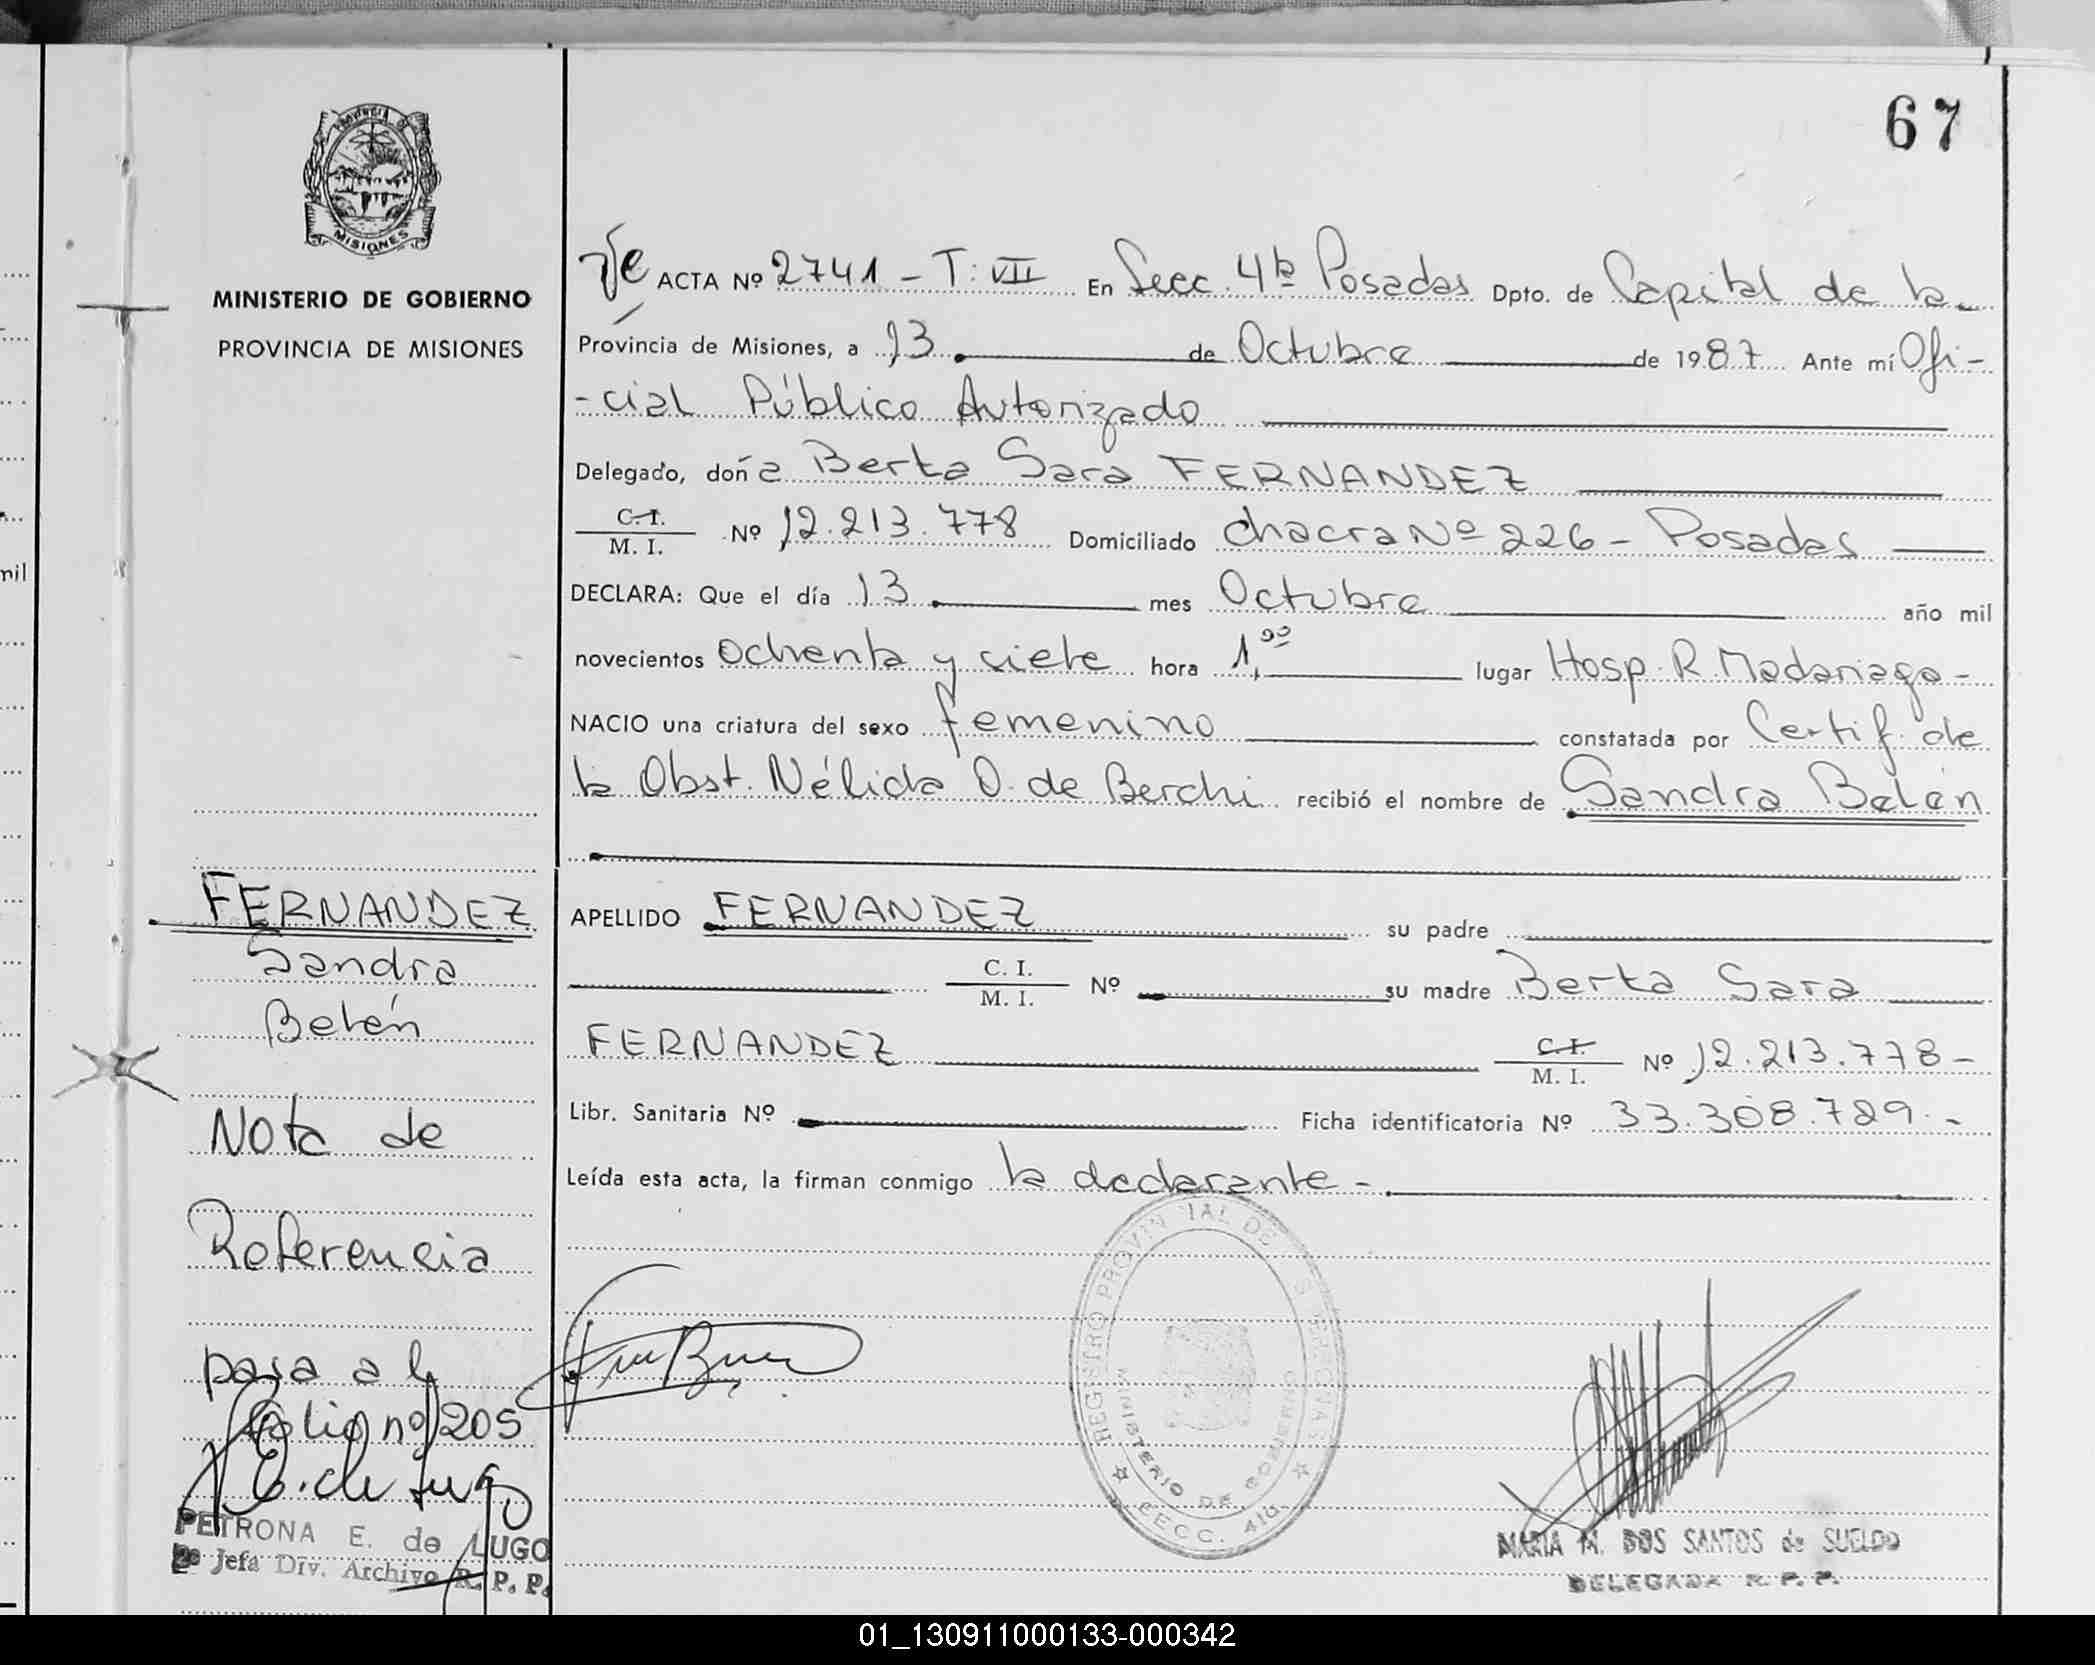 67
PROVINCIA DE
MISIONES
MINISTERIO DE GOBIERNO
PROVINCIA DE MISIONES
ACTA Nº 2741 - T: VII En Secc. 4ta Posadas Dpto. de Capital de la
Provincia de Misiones, a 13 de Octubre de 1987 Ante mí Ofi-
-cial Público Autorizado
Delegado, doña Berta Sara FERNANDEZ
C. I.
M. I. Nº 12.213.778 Domiciliado Chacra Nº 226 - Posadas
DECLARA: Que el día 13 mes Octubre año mil
novecientos ochenta y siete hora 1,00 lugar Hosp. R. Madariaga -
NACIO una criatura del sexo femenino constatada por Certif. de
la Obst. Nélida O. de Berchi recibió el nombre de Sandra Belén
APELLIDO FERNANDEZ su padre
C. I.
M. I. Nº su madre Berta Sara
FERNANDEZ C. I.
M. I. Nº 12.213.778 -
Libr. Sanitaria Nº Ficha identificatoria Nº 33.308.729. -
Leída esta acta, la firman conmigo la declarante -
FERNANDEZ
Sandra
Belén
Nota de
Referencia
pasa al
folio nº 205
E. de Lugo
PETRONA E. de LUGO
2º Jefa Div. Archivo R. P. P.
REGISTRO PROVINCIAL DE
MINISTERIO DE GOBIERNO
SECC. 4ta.
MARIA M. DOS SANTOS de SUELDO
DELEGADA R. P. P.
mil
01_130911000133-000342